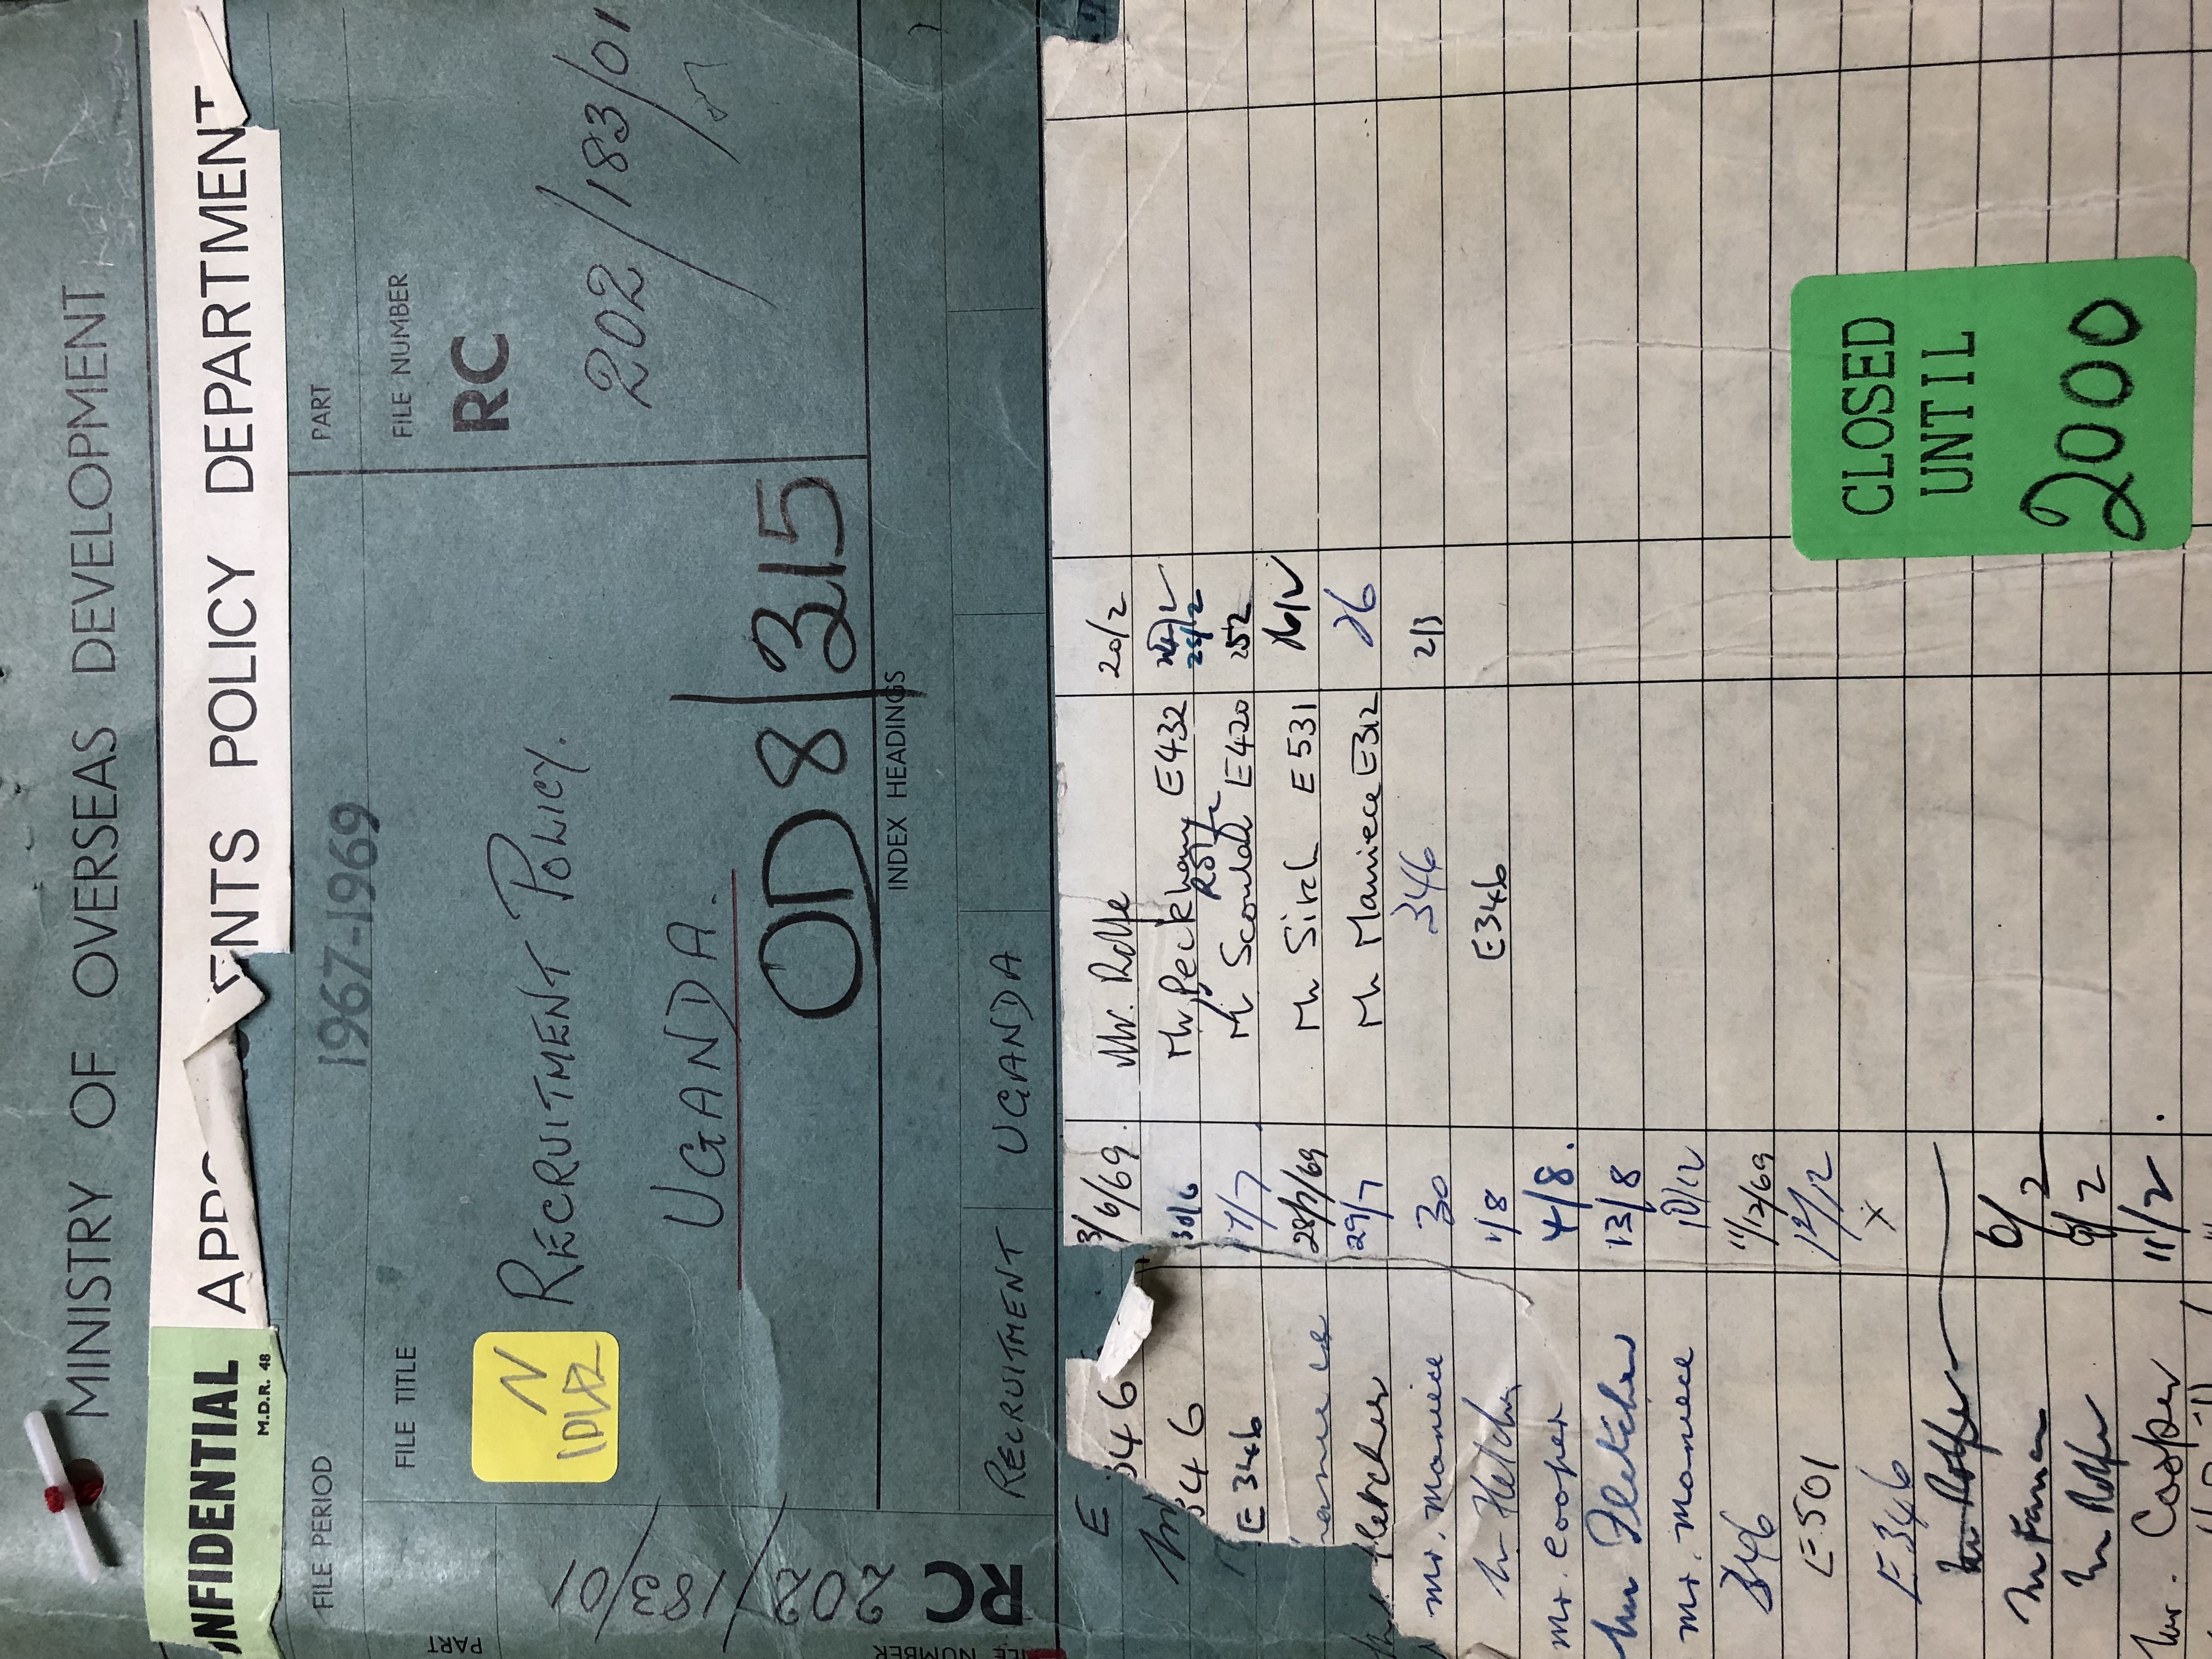 MINISTRY OF OVERSEAS DEVELOPMENT
NFIDENTIAL
M.D.R. 48
APPO ENTS POLICY DEPARTMENT
FILE PERIOD
1967-1969
PART
FILE TITLE
FILE NUMBER
RC
202/183/01
N
RECRUITMENT POLICY.
UGANDA.
OD 8/315
PART
FILE NUMBER
RC 202/183/01
INDEX HEADINGS
RECRUITMENT UGANDA
E 346 3/6/69. Mr. Rolfe 20/2
346 30/6 Mr Peckham E432
Rolfe 25/2
E346 17/7 Mr E420 252
28/7/69 Mr E531 26/2
Fletcher 29/7 Mr Maniece E312 26
Mr. Maniece 30 346 2/3
Mr Fletcher 1/8 E346
Mr. Cooper 4/8.
Mr Fletcher 13/8
Mr. Maniece 10/12
346 11/12/69
E501 12/12
E346 X
Mr Rolfe
Mr 6/2
Mr Rolfe 9/2
Mr. Cooper 11/2
CLOSED
UNTIL
2000